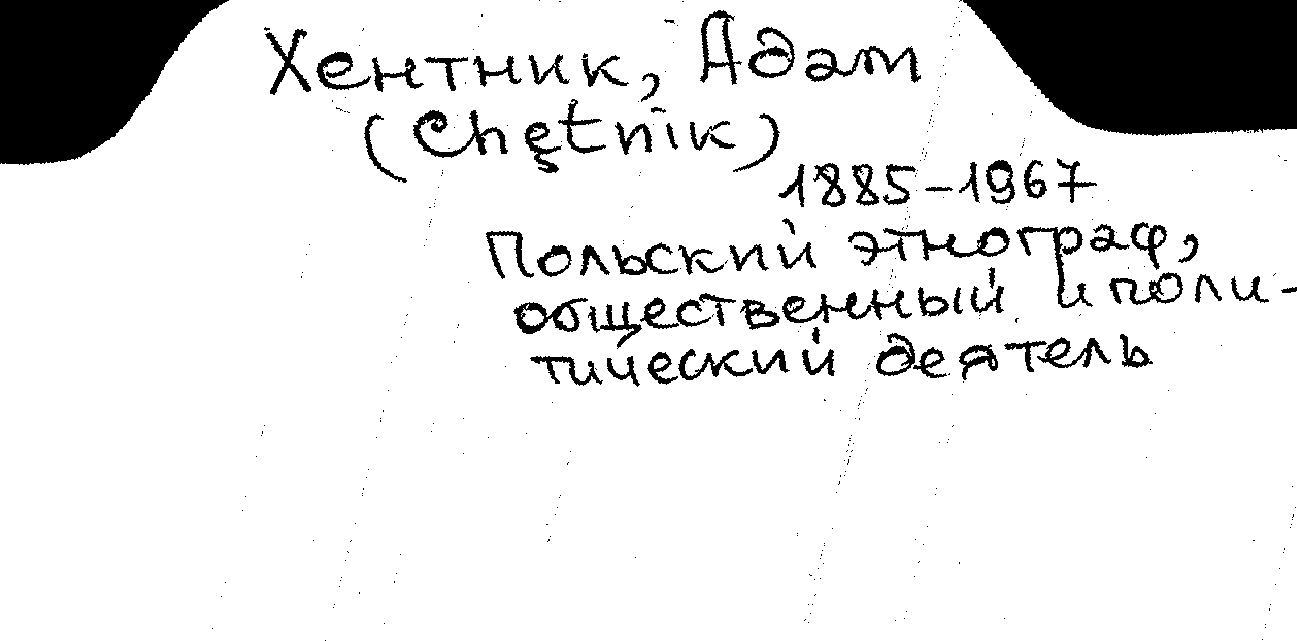 Хентник, Адам
(Chętnik)
1885-1967
Польский этнограф,
общественный и поли-
тический деятель